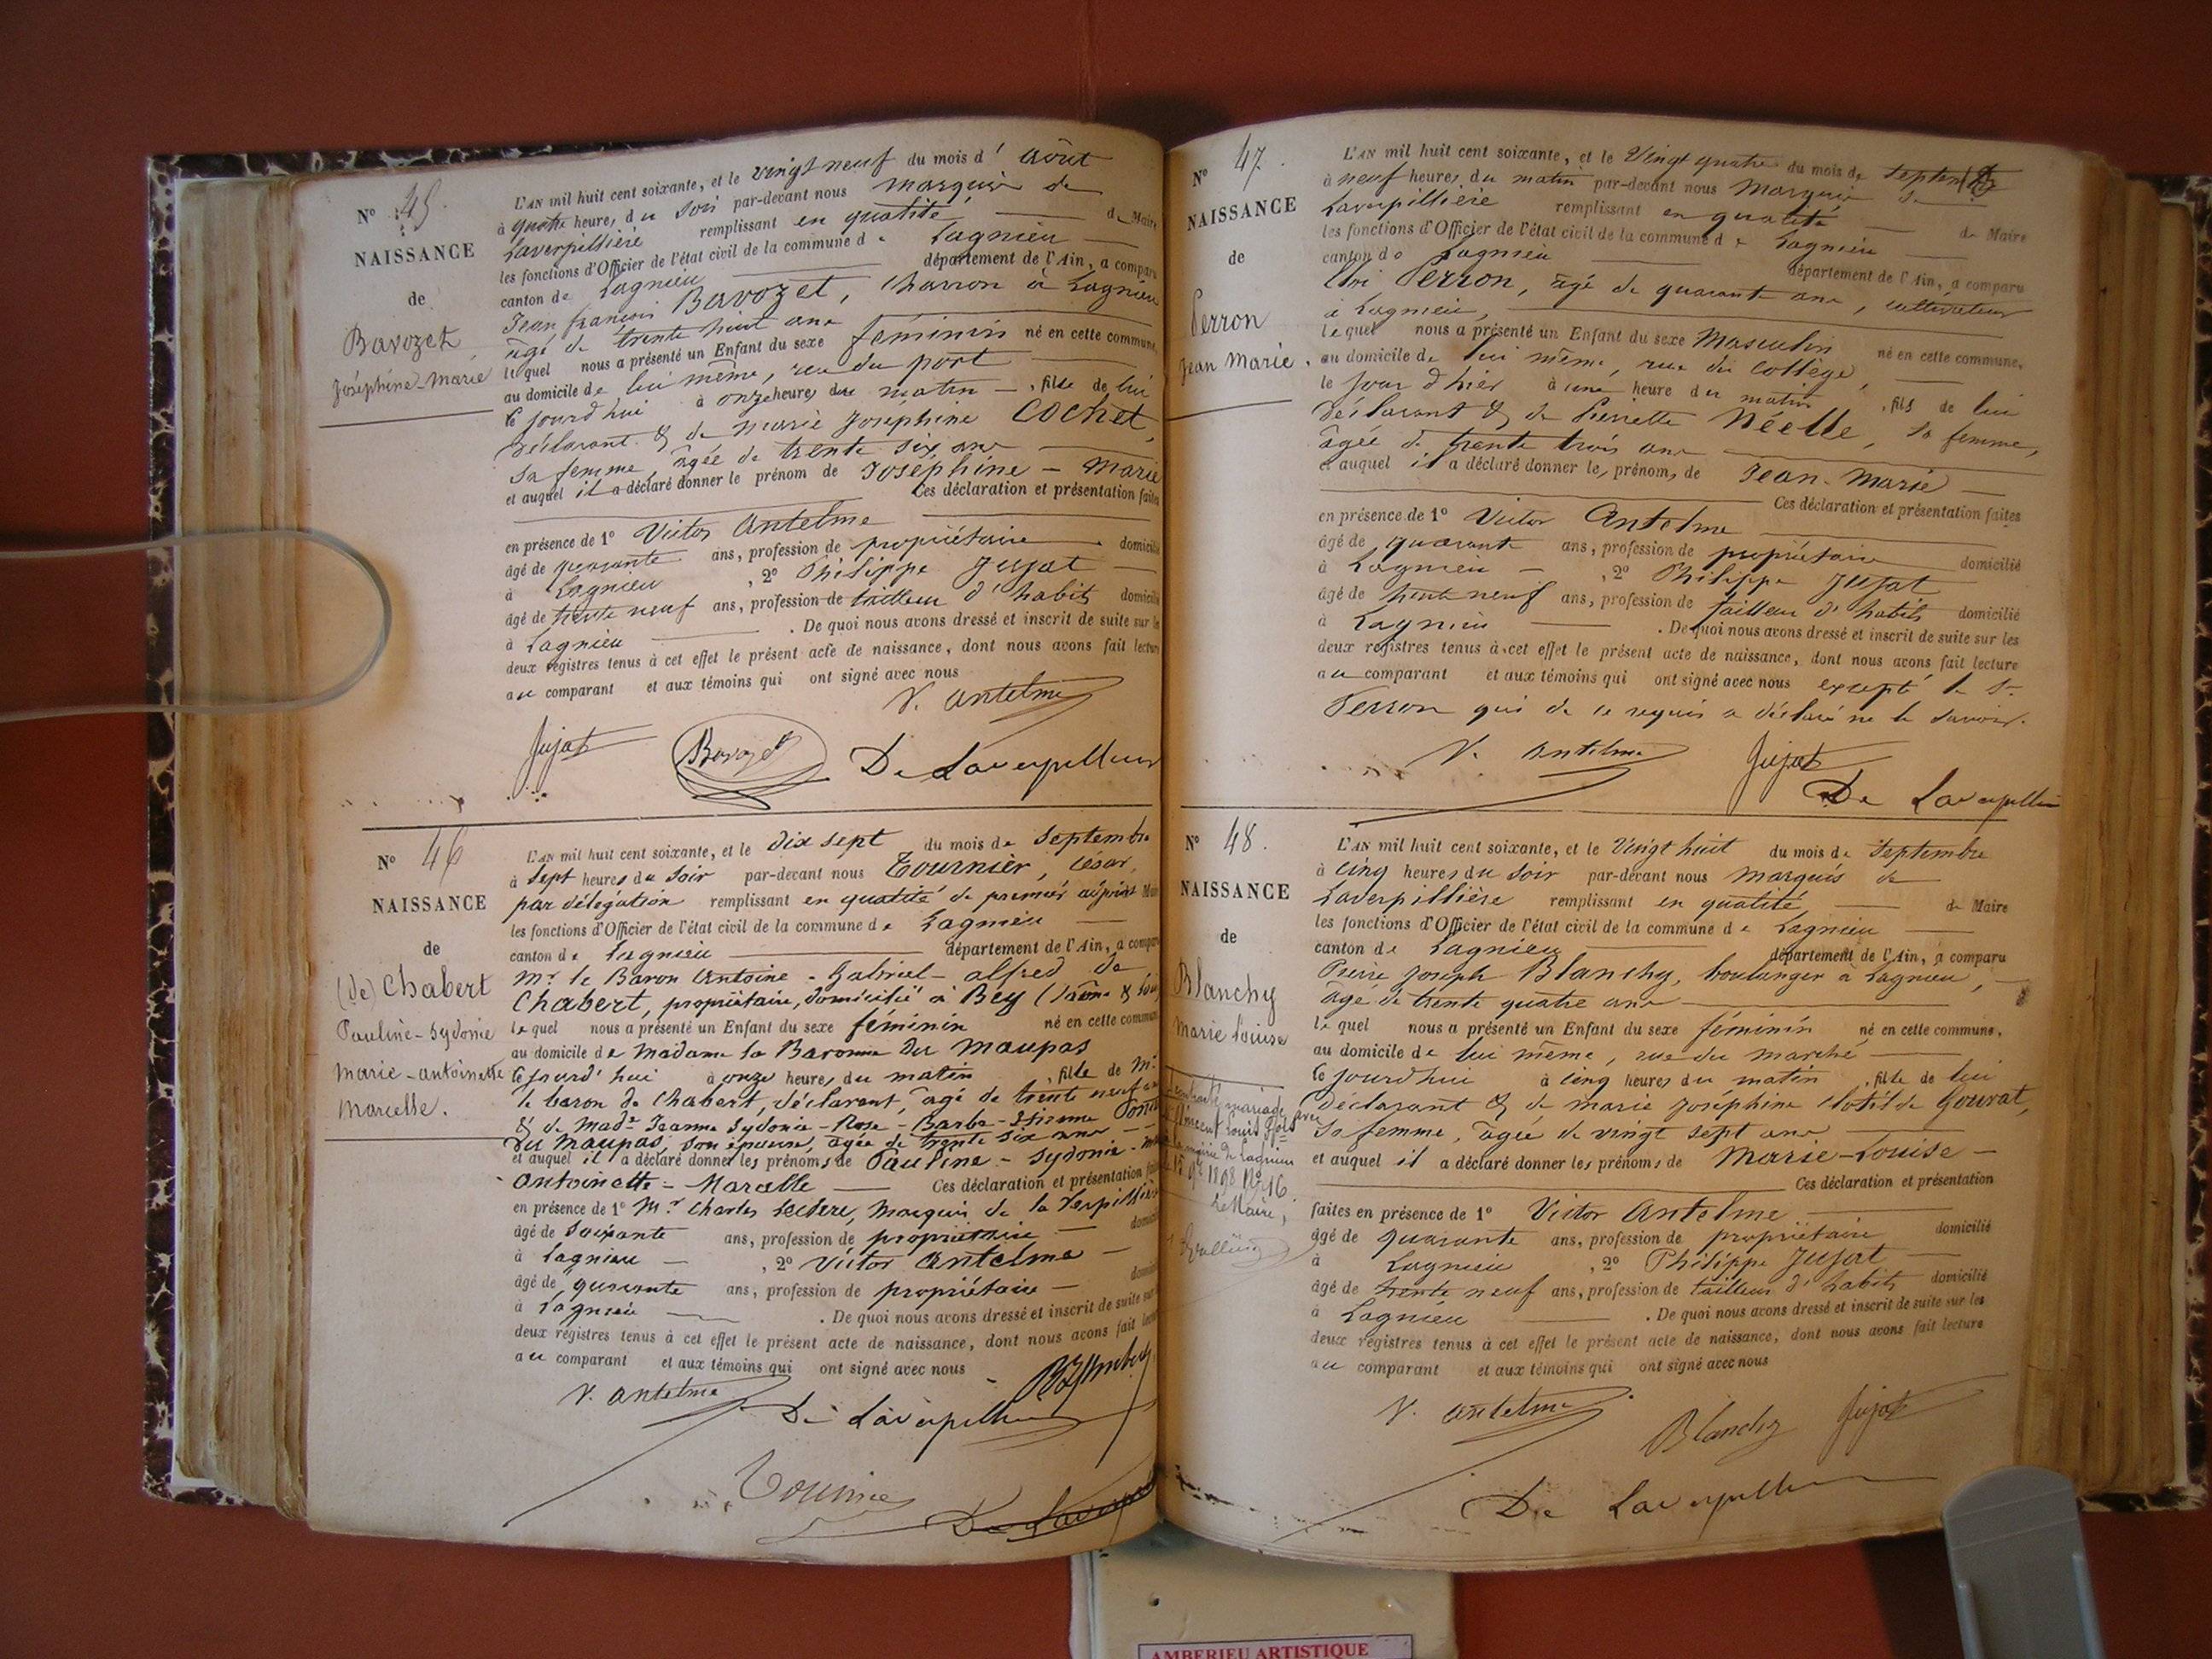 Nº 45.
NAISSANCE
de
Bavozet
Joséphine-Marie
L'AN mil huit cent soixante, et le vingt neuf du mois d' août
à quatre heures du soir par-devant nous marquis de
Laverpillière remplissant en qualité de Maire
les fonctions d'Officier de l'état civil de la commune de Lagnieu
canton de Lagnieu département de l'Ain, a comparu
Jean françois Bavozet, charron à Lagnieu
âgé de trente huit ans
lequel nous a présenté un Enfant du sexe féminin né en cette commune,
au domicile de lui même, rue du port
le jourd'hui à onze heures du matin, fille de lui
déclarant & de marie Joséphine Cochet,
sa femme, âgée de trente six ans
et auquel il a déclaré donner le prénom de Joséphine - Marie
Ces déclaration et présentation faites
en présence de 1º Victor Antelme
âgé de quarante ans, profession de propriétaire domicilié
à Lagnieu, 2º Philippe Jujat
âgé de trente neuf ans, profession de tailleur d'habits domicilié
à Lagnieu. De quoi nous avons dressé et inscrit de suite sur les
deux registres tenus à cet effet le présent acte de naissance, dont nous avons fait lecture
au comparant et aux témoins qui ont signé avec nous
V. Antelme
Jujat Bavozet De Laverpilliere
Nº 46
NAISSANCE
de
(de) Chabert
Pauline-Sydonie
Marie-antoinette
Marcelle.
L'AN mil huit cent soixante, et le dix sept du mois de Septembre
à sept heures du soir par-devant nous Tournier, César,
par délégation remplissant en qualité de premier adjoint Maire
les fonctions d'Officier de l'état civil de la commune de Lagnieu
canton de Lagnieu département de l'Ain, a comparu
Mr. le Baron Antoine-Gabriel-alfred de
Chabert, propriétaire, domicilié à Bey (Saône &
lequel nous a présenté un Enfant du sexe féminin né en cette commune
au domicile de Madame la Baronne du Maupas
le jourd'hui à onze heures du matin, fille de Mr.
le baron de Chabert, déclarant, âgé de trente neuf ans
& de Made. Jeanne Sydonie-Rose-Barbe-Etienne
du Maupas, son épouse, âgée de trente six ans
et auquel il a déclaré donner les prénoms de Pauline-Sydonie-
Antoinette-Marcelle Ces déclaration et présentation faites
en présence de 1º Mr. Charles Leclerc, Marquis de la Verpillière
âgé de soixante ans, profession de propriétaire domicilié
à Lagnieu, 2º Victor Antelme
âgé de quarante ans, profession de propriétaire
à Lagnieu. De quoi nous avons dressé et inscrit de suite sur
deux registres tenus à cet effet le présent acte de naissance, dont nous avons fait lecture
au comparant et aux témoins qui ont signé avec nous
V. Antelme De Laverpilliere
Tournier
Nº 47.
NAISSANCE
de
Perron
Jean Marie.
L'AN mil huit cent soixante, et le Vingt quatre du mois de Septembre
à neuf heures du matin par-devant nous Marquis de
Laverpillière remplissant en qualité de Maire
les fonctions d'Officier de l'état civil de la commune de Lagnieu
canton de Lagnieu département de l'Ain, a comparu
Perron, âgé de quarante ans, cultivateur
à Lagnieu,
lequel nous a présenté un Enfant du sexe Masculin né en cette commune,
au domicile de lui même, rue du college,
le jour d'hier à une heure du matin, fils de lui
déclarant & de Pierrette Néelle, sa femme,
âgée de trente trois ans
et auquel il a déclaré donner les prénoms de Jean-Marie
Ces déclaration et présentation faites
en présence de 1º Victor Antelme
âgé de quarante ans, profession de propriétaire domicilié
à Lagnieu, 2º Philippe Jujat
âgé de trente neuf ans, profession de tailleur d'habits domicilié
à Lagnieu. De quoi nous avons dressé et inscrit de suite sur les
deux registres tenus à cet effet le présent acte de naissance, dont nous avons fait lecture
au comparant et aux témoins qui ont signé avec nous excepté le Sr.
Perron qui de ce requis a déclaré ne le savoir.
V. Antelme Jujat
De Laverpilliere
Nº 48.
NAISSANCE
de
Blanchy
Marie Louise
mariage avec
Vincent Louis
mairie de Lagnieu
1898 Nº 16
Le Maire,
L'AN mil huit cent soixante, et le Vingt huit du mois de Septembre
à cinq heures du soir par-devant nous marquis de
Laverpillière remplissant en qualité de Maire
les fonctions d'Officier de l'état civil de la commune de Lagnieu
canton de Lagnieu département de l'Ain, a comparu
Pierre Joseph Blanchy, boulanger à Lagnieu,
âgé de trente quatre ans
lequel nous a présenté un Enfant du sexe féminin né en cette commune,
au domicile de lui même, rue du marché
le jourd'hui à cinq heures du matin, fille de lui
déclarant & de marie Joséphine Clotilde Gouvat,
sa femme, âgée de vingt sept ans
et auquel il a déclaré donner les prénoms de Marie-Louise
Ces déclaration et présentation
faites en présence de 1º Victor Antelme
âgé de quarante ans, profession de propriétaire domicilié
à Lagnieu, 2º Philippe Jujat
âgé de trente neuf ans, profession de tailleur d'habits domicilié
à Lagnieu. De quoi nous avons dressé et inscrit de suite sur les
deux registres tenus à cet effet le présent acte de naissance, dont nous avons fait lecture
au comparant et aux témoins qui ont signé avec nous
V. Antelme
Blanchy Jujat
De Laverpilliere
AMBERIEU ARTISTIQUE